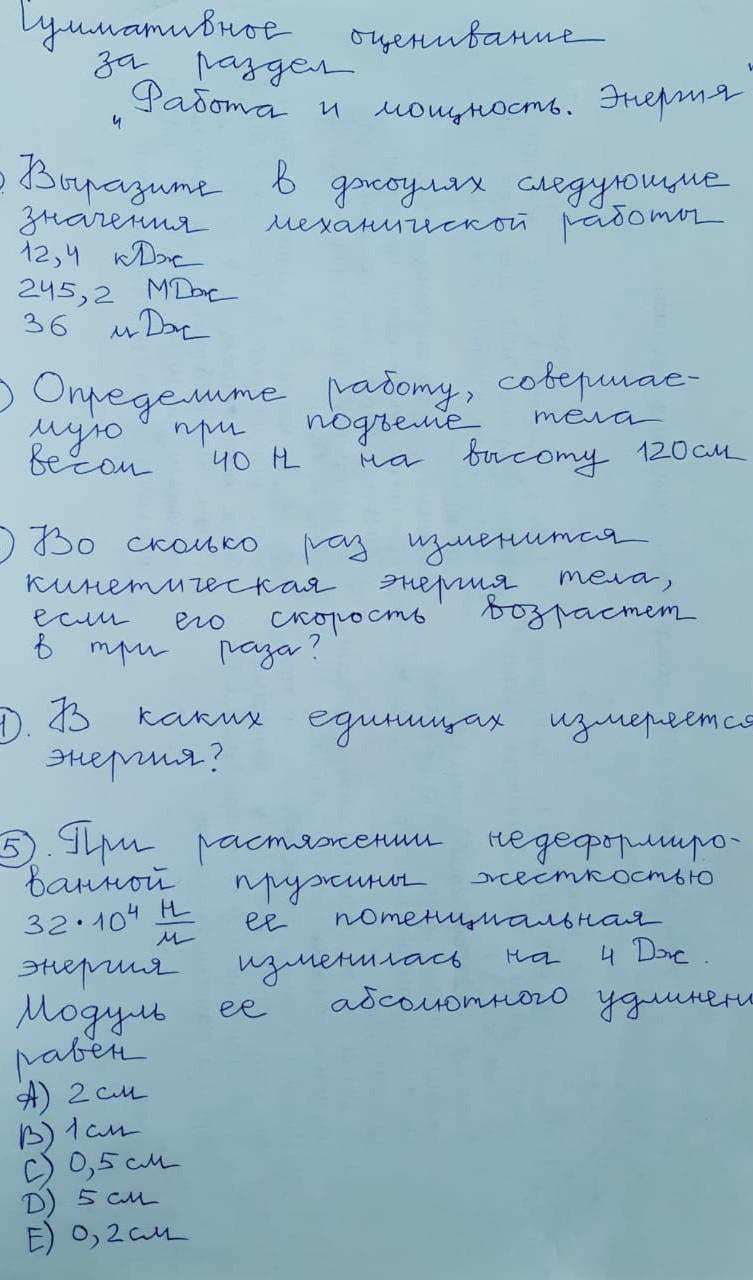 Суммативное оценивание
за раздел
"Работа и мощность. Энергия"
) Выразите в джоулях следующие
значения механической работы
12,4 кДж
245,2 МДж
36 мДж
) Определите работу, совершае-
мую при подъеме тела
весом 40 Н на высоту 120 см
) Во сколько раз изменится
кинетическая энергия тела,
если его скорость возрастет
в три раза?
4). В каких единицах измеряется
энергия?
5). При растяжении недеформиро-
ванной пружины жесткостью
32·10⁴ Н/м ее потенциальная
энергия изменилась на 4 Дж.
Модуль ее абсолютного удлинен
равен
А) 2 см
В) 1 см
С) 0,5 см
D) 5 см
Е) 0,2 см